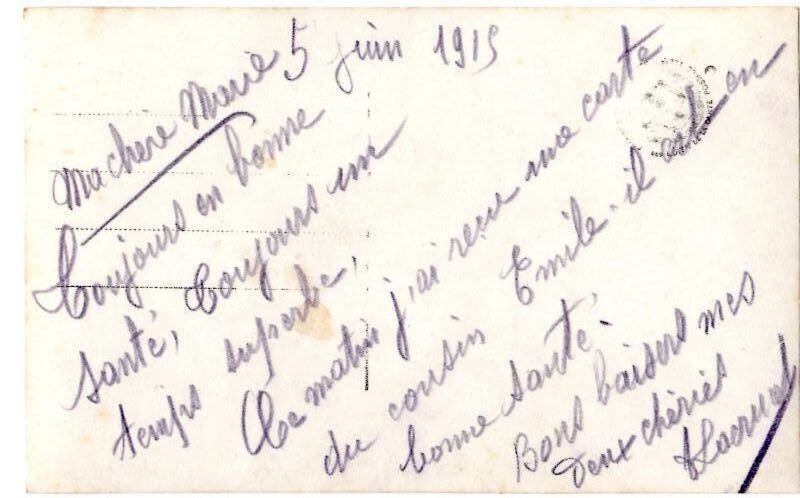 5 juin 1915
Ma chère Marie
Toujours en bonne
santé, toujours un
temps superbe,
Ce matin j'ai reçu une carte
du cousin Emile. il est en
bonne santé.
Bons baisers mes
deux chéries